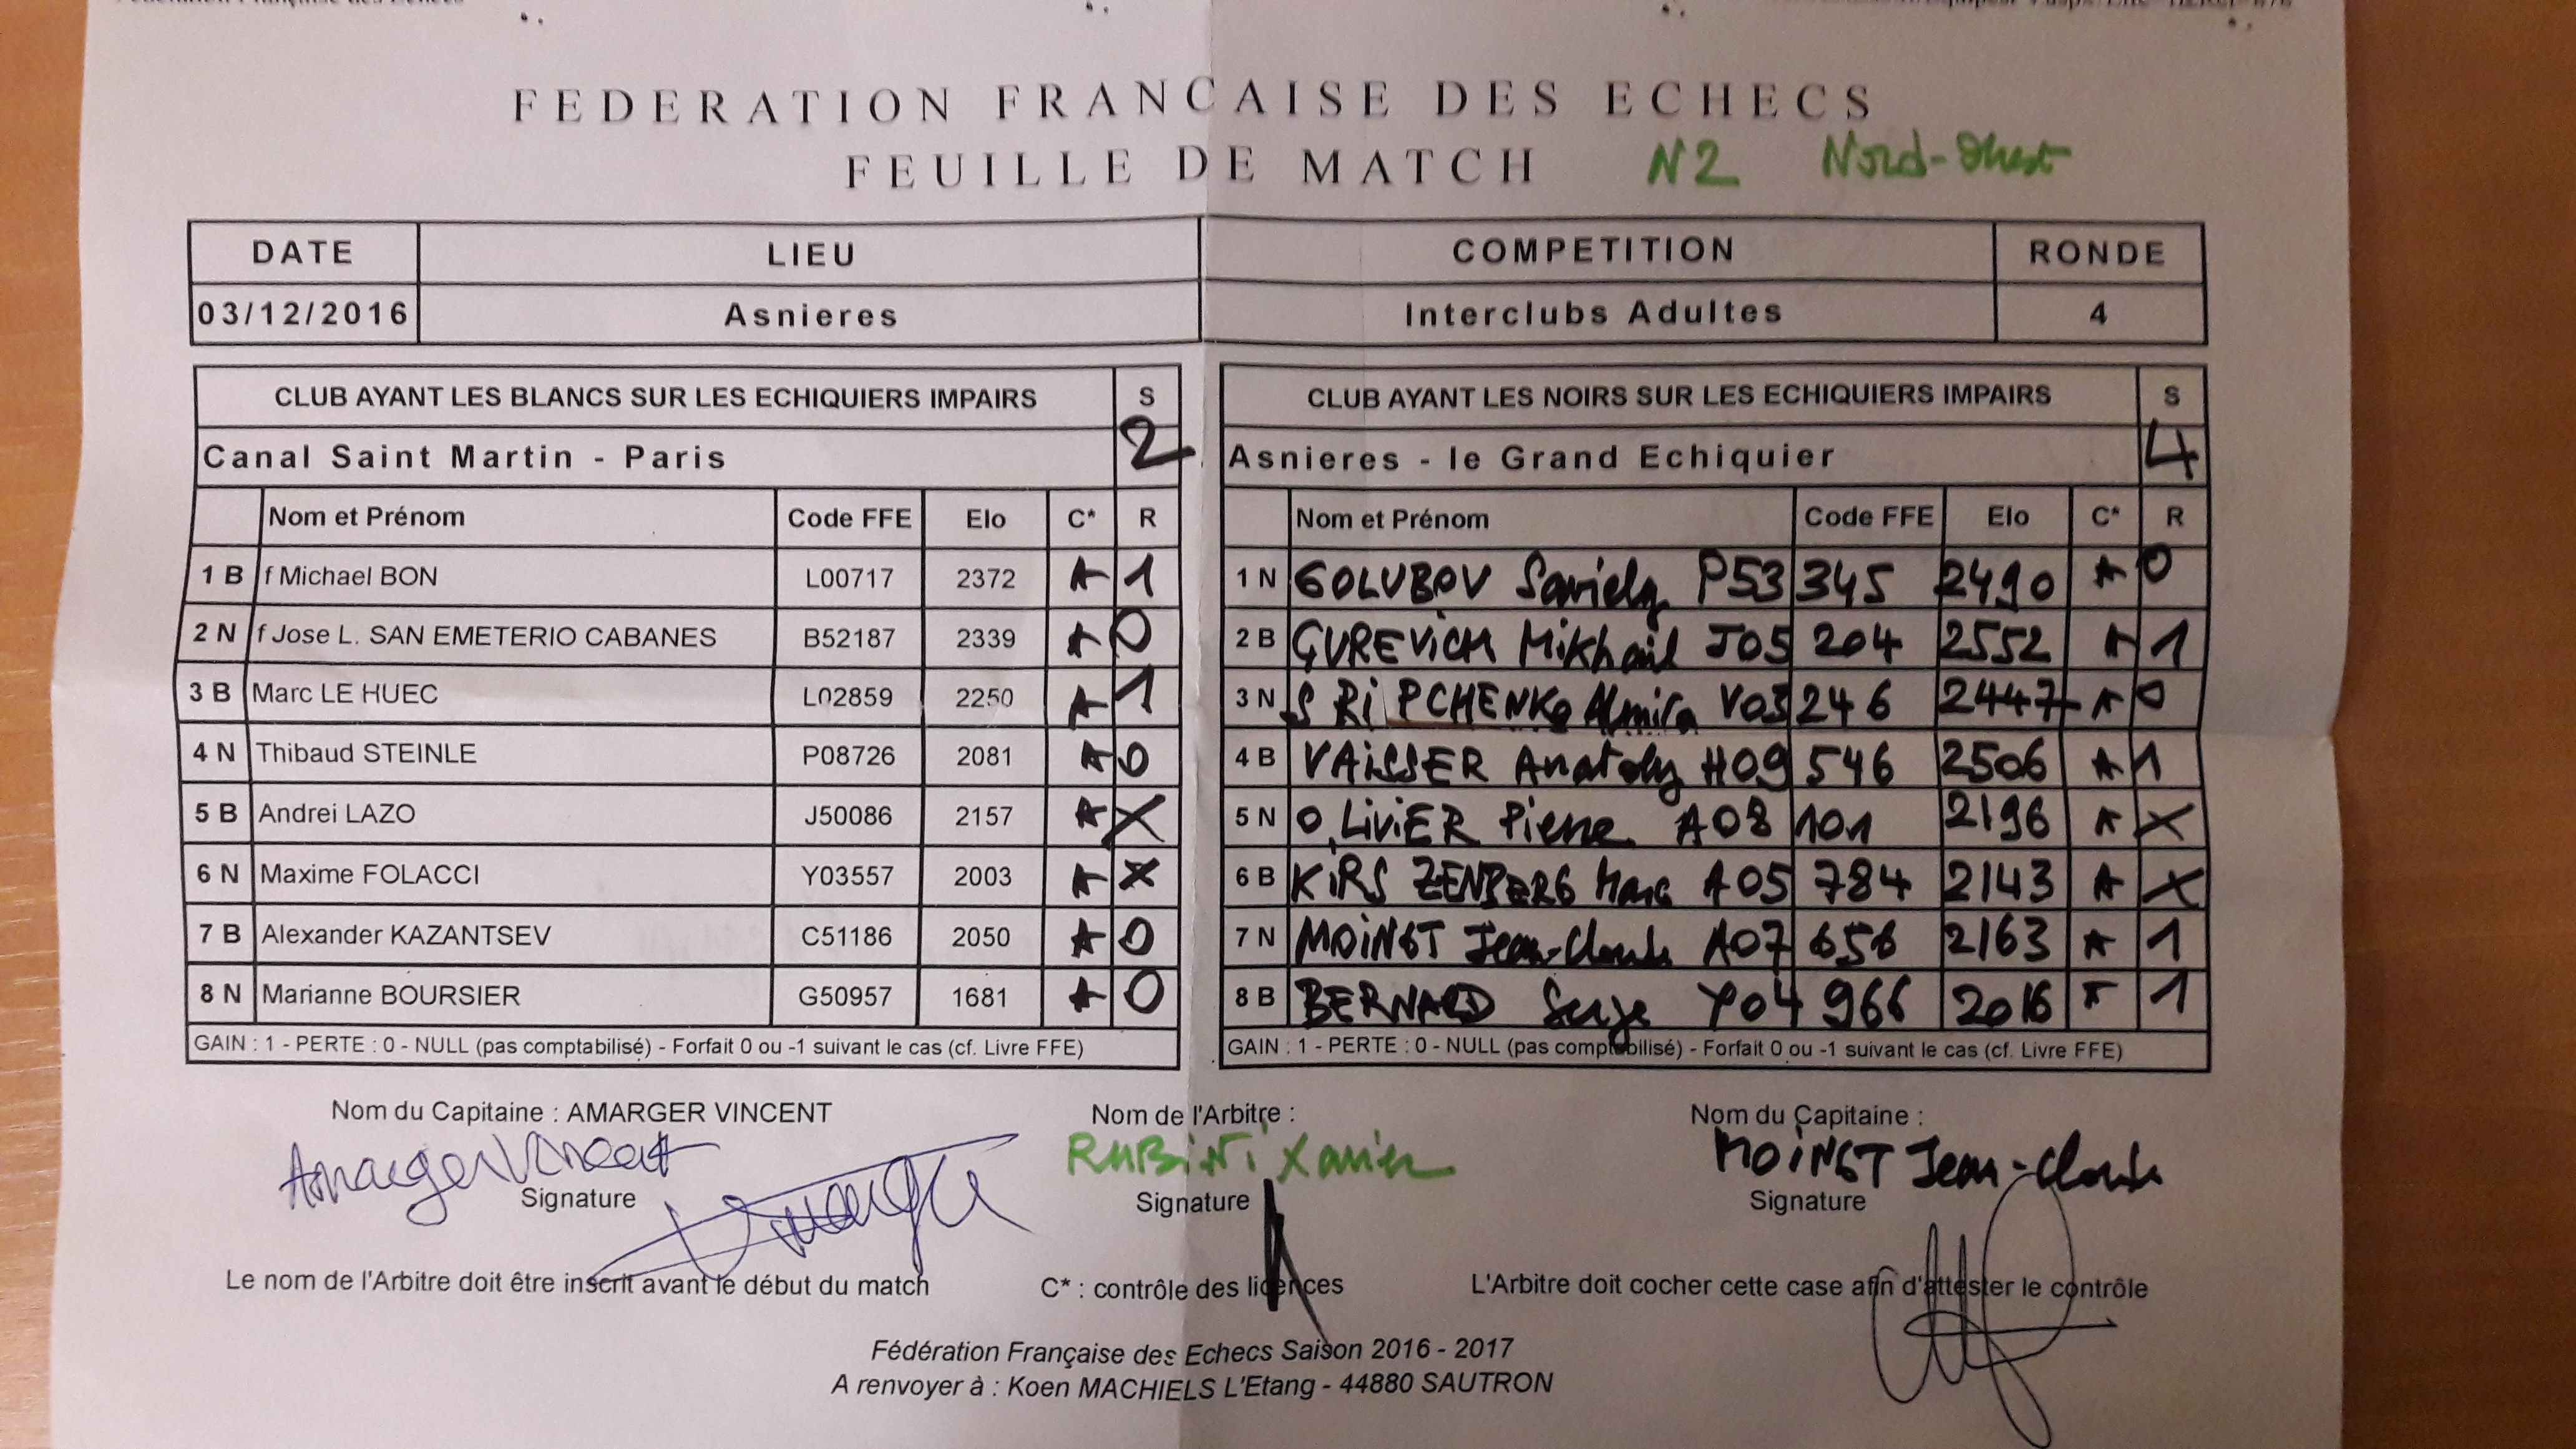 FEDERATION FRANCAISE DES ECHECS
FEUILLE DE MATCH N2 Nord-Ouest
DATE LIEU COMPETITION RONDE
03/12/2016 Asnieres Interclubs Adultes 4
CLUB AYANT LES BLANCS SUR LES ECHIQUIERS IMPAIRS S
Canal Saint Martin - Paris 2
Nom et Prénom Code FFE Elo C* R
1 B f Michael BON L00717 2372 A 1
2 N f Jose L. SAN EMETERIO CABANES B52187 2339 A 0
3 B Marc LE HUEC L02859 2250 A 1
4 N Thibaud STEINLE P08726 2081 A 0
5 B Andrei LAZO J50086 2157 A X
6 N Maxime FOLACCI Y03557 2003 A X
7 B Alexander KAZANTSEV C51186 2050 A 0
8 N Marianne BOURSIER G50957 1681 A 0
GAIN : 1 - PERTE : 0 - NULL (pas comptabilisé) - Forfait 0 ou -1 suivant le cas (cf. Livre FFE)
CLUB AYANT LES NOIRS SUR LES ECHIQUIERS IMPAIRS S
Asnieres - le Grand Echiquier 4
Nom et Prénom Code FFE Elo C* R
1 N GOLUBOV Saviely P53345 2490 A 0
2 B GUREVICH Mikhail J05204 2552 A 1
3 N SRIPCHENKO Almira V03246 2447 A 0
4 B VAISSER Anatoly H09546 2506 A 1
5 N OLIVIER Pierre A08101 2196 A X
6 B KIRSZENBERG Marc A05784 2143 A X
7 N MOINGT Jean-Claude A07656 2163 A 1
8 B BERNARD Serge Y04966 2016 A 1
GAIN : 1 - PERTE : 0 - NULL (pas comptabilisé) - Forfait 0 ou -1 suivant le cas (cf. Livre FFE)
Nom du Capitaine : AMARGER VINCENT Nom de l'Arbitre : Nom du Capitaine :
Amarger Vincent RUBINI Xavier MOINGT Jean-Claude
Signature Signature Signature
Le nom de l'Arbitre doit être inscrit avant le début du match C* : contrôle des licences L'Arbitre doit cocher cette case afin d'attester le contrôle
Fédération Française des Echecs Saison 2016 - 2017
A renvoyer à : Koen MACHIELS L'Etang - 44880 SAUTRON